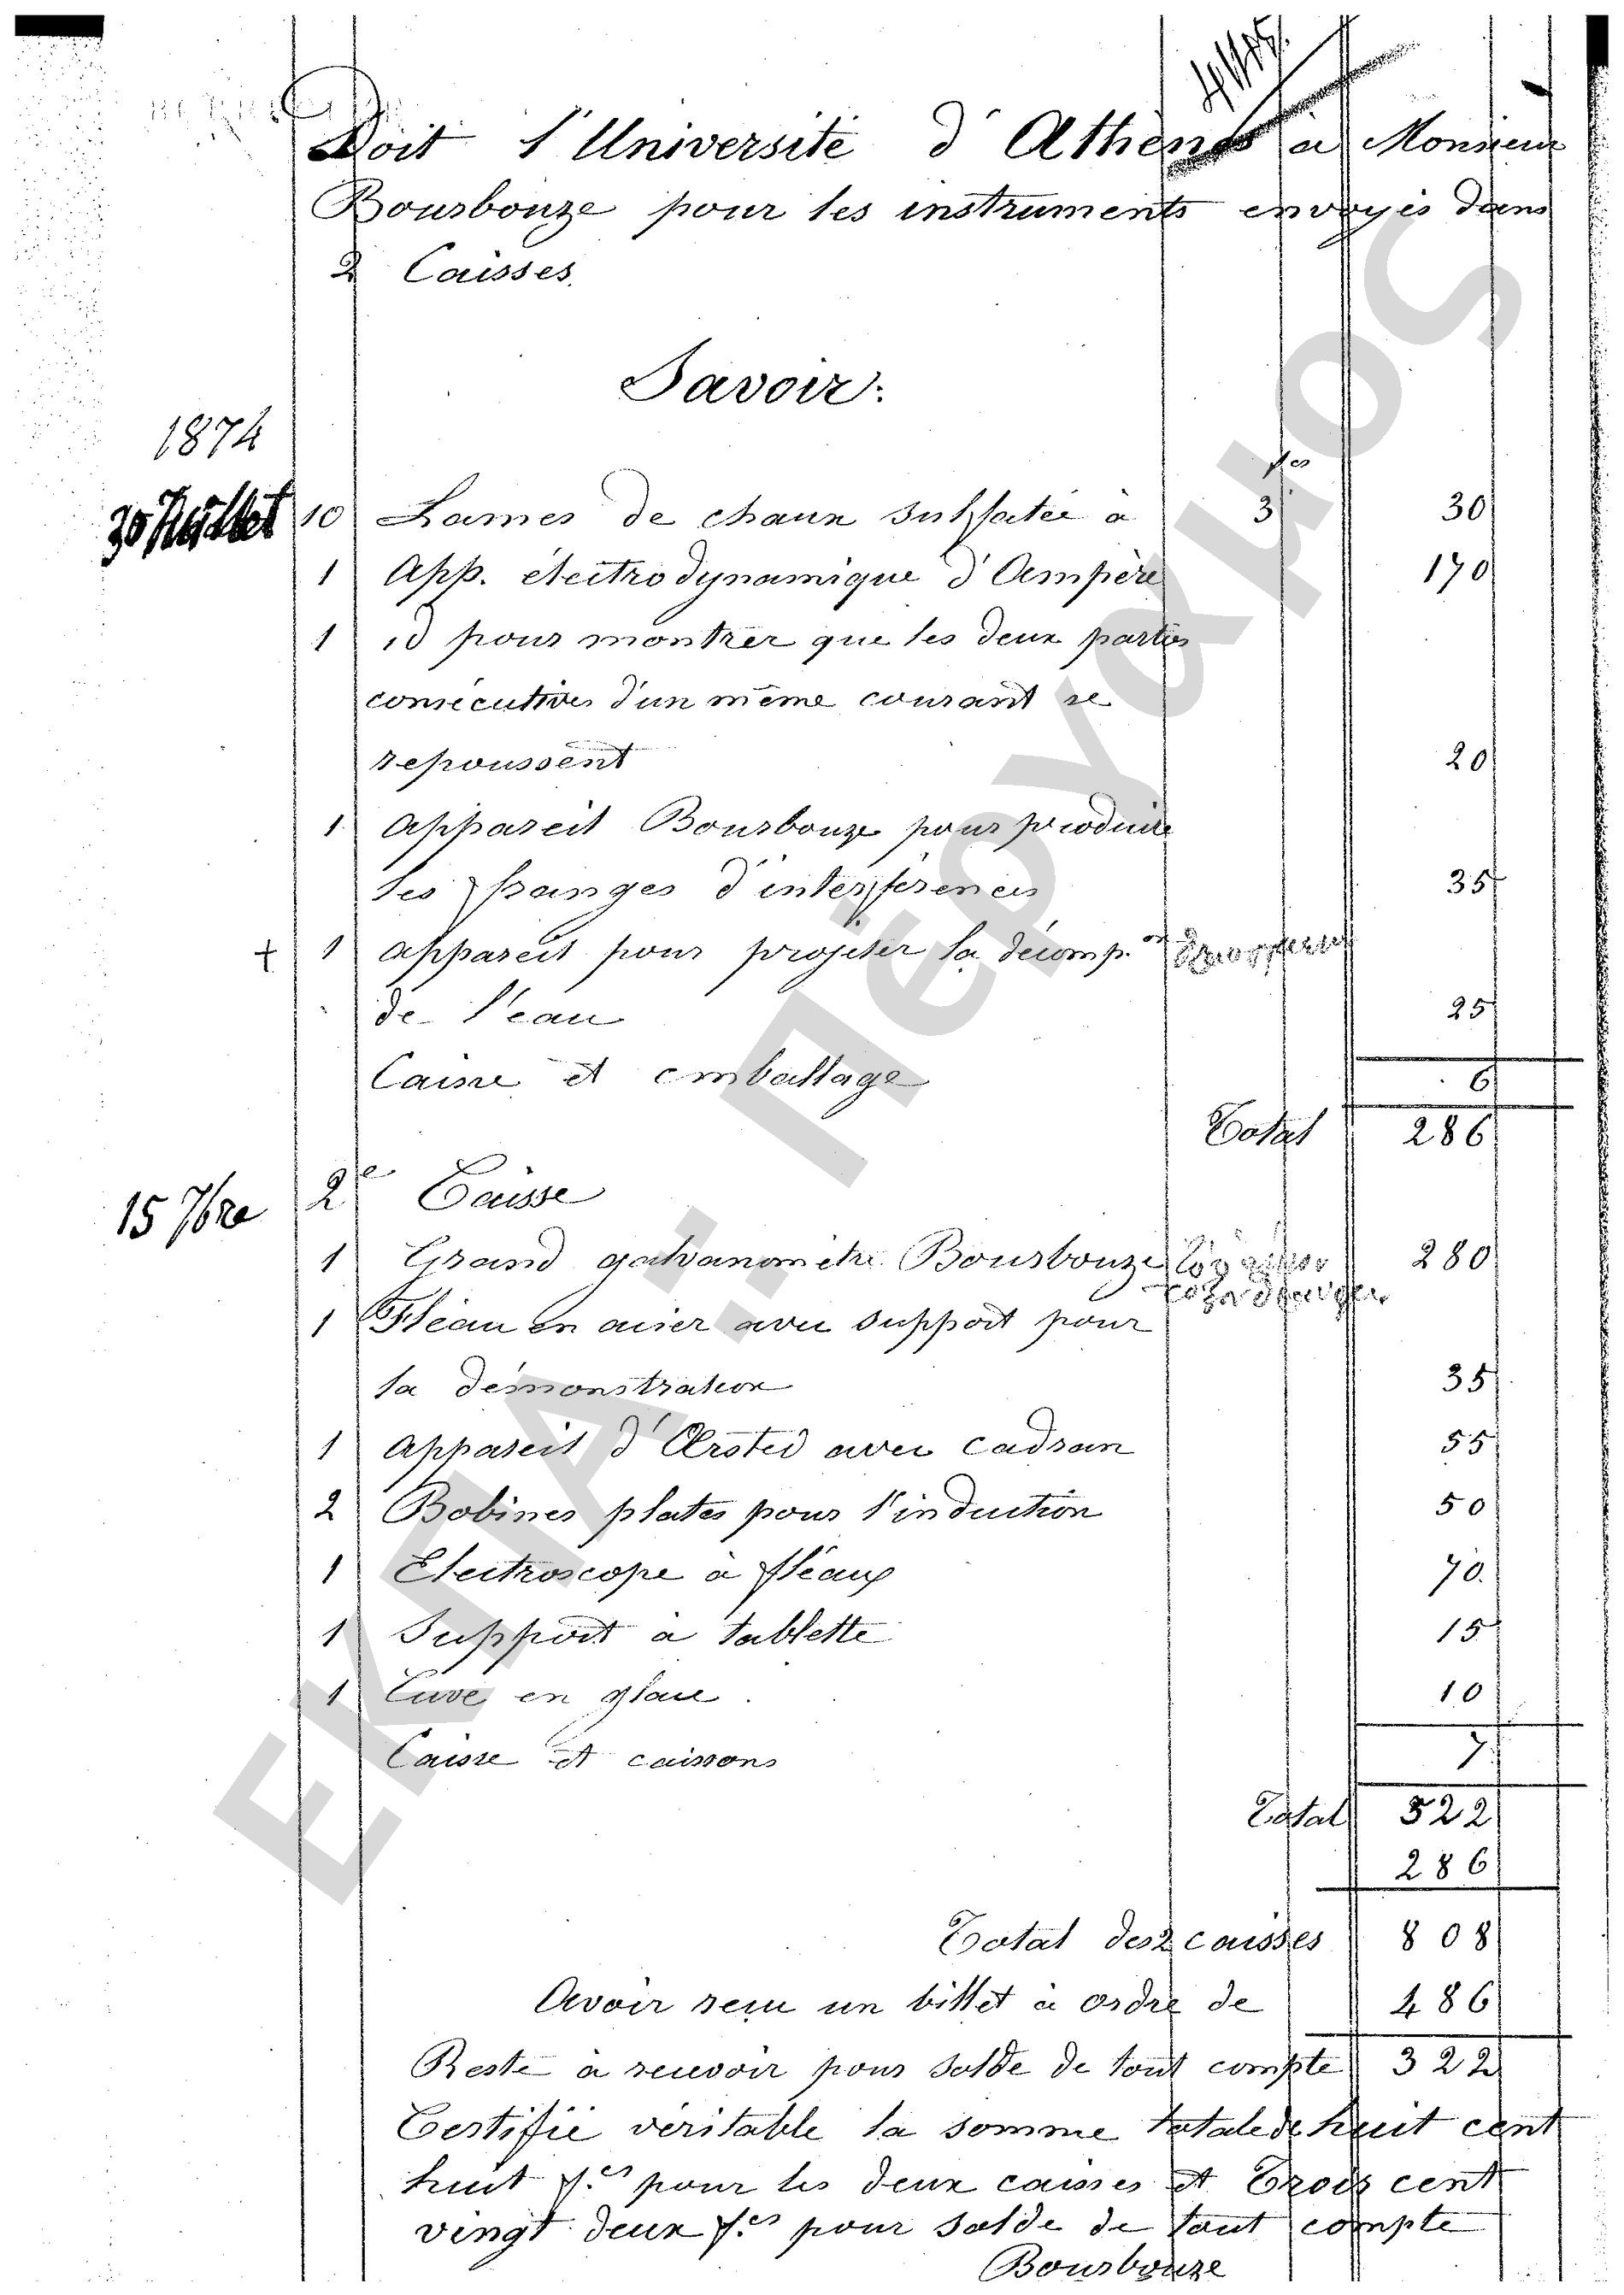 Doit l'Université d'Athènes à Monsieur
Bourbouze pour les instruments envoyés dans
2 Caisses.
Savoir:
1874
fcs
30 Juillet 10 Lames de chaux sulfatée à 3 30
1 App. électrodynamique d'Ampère 170
1 id pour montrer que les deux parties
consécutives d'un même courant se
repoussent 20
1 Appareil Bourbouze pour produire
les franges d'interférences 35
+ 1 appareil pour projeter la décomp.on
de l'eau 25
Caisse et emballage 6
Total 286
15 7bre 2e Caisse
1 Grand galvanomètre Bourbouze 280
1 Fléau en acier avec support pour
la démonstration 35
1 Appareil d'Œrsted avec cadran 55
2 Bobines plates pour l'induction 50
1 Electroscope à fléaux 70
1 Support à tablette 15
1 Cuve en glace 10
Caisse et caissons 7
Total 522
286
Total des 2 caisses 808
Avoir reçu un billet à ordre de 486
Reste à recevoir pour solde de tout compte 322
Certifié véritable la somme totale de huit cent
huit f.cs pour les deux caisses et Trois cent
vingt deux f.cs pour solde de tout compte
Bourbouze
ΕΚΠΑ:: Πέργαμος